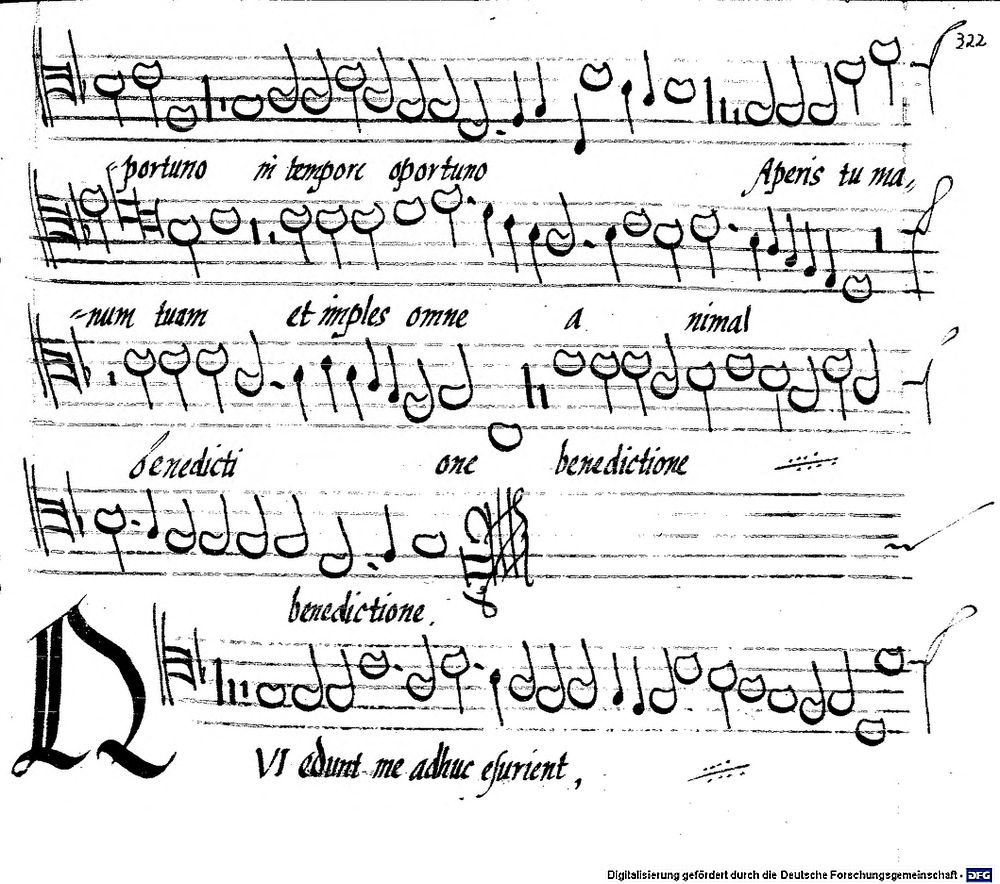 322
portuno in tempore oportuno Aperis tu ma,,
num tuam et imples omne a nimal
benedicti one benedictione
benedictione.
QVI edunt me adhuc esurient,
Digitalisierung gefördert durch die Deutsche Forschungsgemeinschaft - DFG